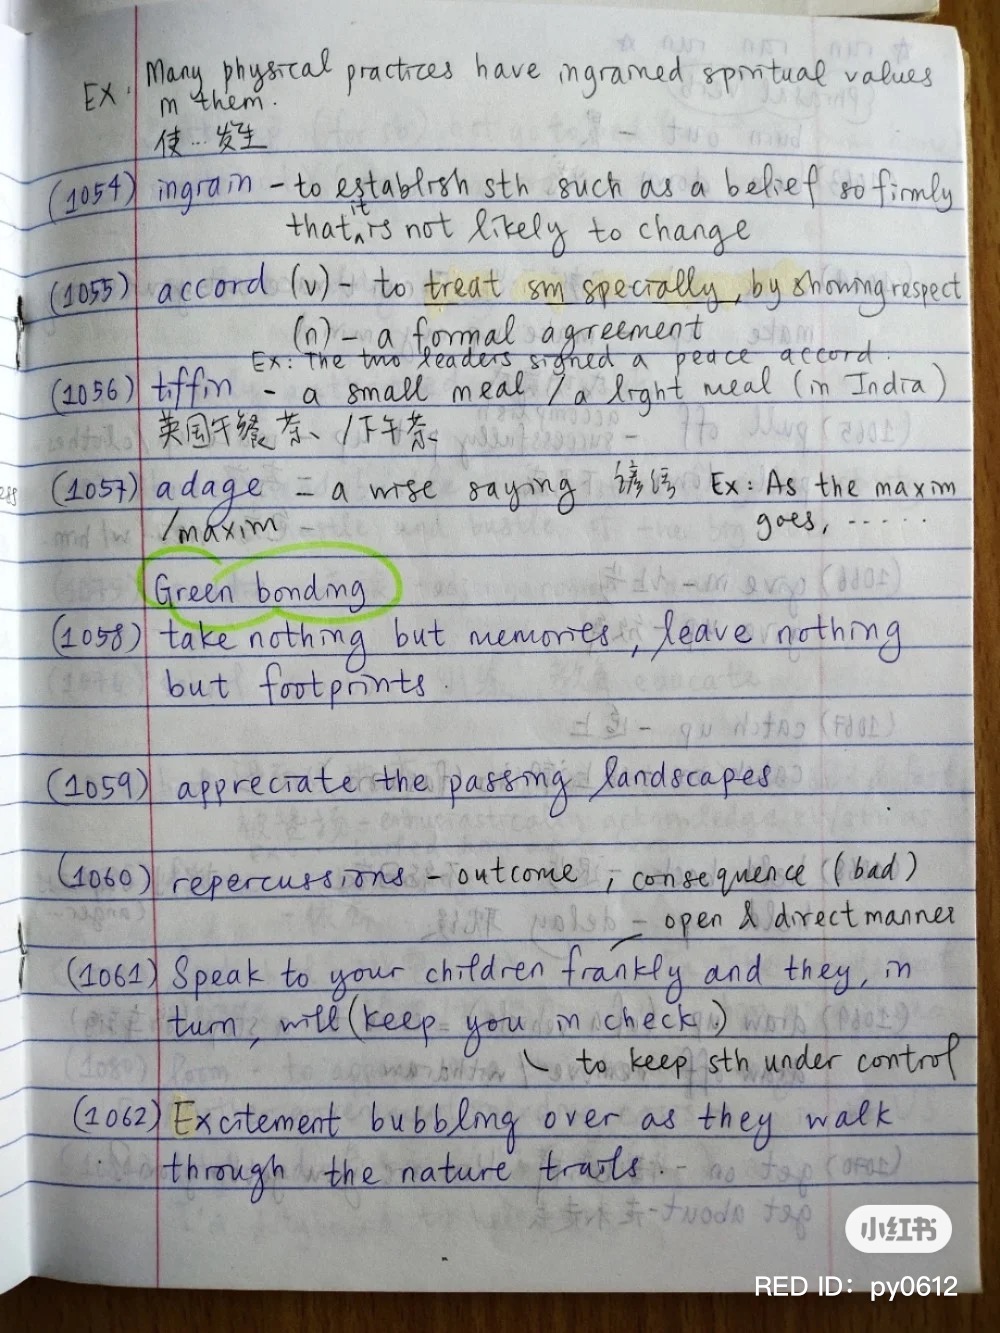 EX. Many physical practices have ingrained spiritual values
in them.
使...发生
(1054) ingrain - to establish sth such as a belief so firmly
that it is not likely to change
(1055) accord (v) - to treat sm specially, by showing respect
(n) - a formal agreement
Ex: The two leaders signed a peace accord.
(1056) tiffin - a small meal / a light meal (in India)
英国午餐茶、/下午茶
(1057) adage = a wise saying 谚语 Ex: As the maxim
/maxim goes, ......
Green bonding
(1058) take nothing but memories, leave nothing
but footprints.
(1059) appreciate the passing landscapes
(1060) repercussions - outcome ; consequence (bad)
- open & direct manner
(1061) Speak to your children frankly and they, in
turn, will (keep you in check)
to keep sth under control
(1062) Excitement bubbling over as they walk
through the nature trails.
小红书
RED ID: py0612